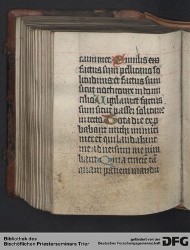 carni mee Similis
factus sum pellicano so
litudinis et factus sum
sicut nocticorax in domi
cilio Uigilaui et factus
sum sicut passer solita
in tecto Tota die
babant michi inimici
mei et qui laudabant
me aduersum me iura
bant Quia cinere ta
quam panem mandu
Bibliothek des
Bischöflichen Priesterseminars Trier
gefördert von der
Deutschen Forschungsgemeinschaft
DFG